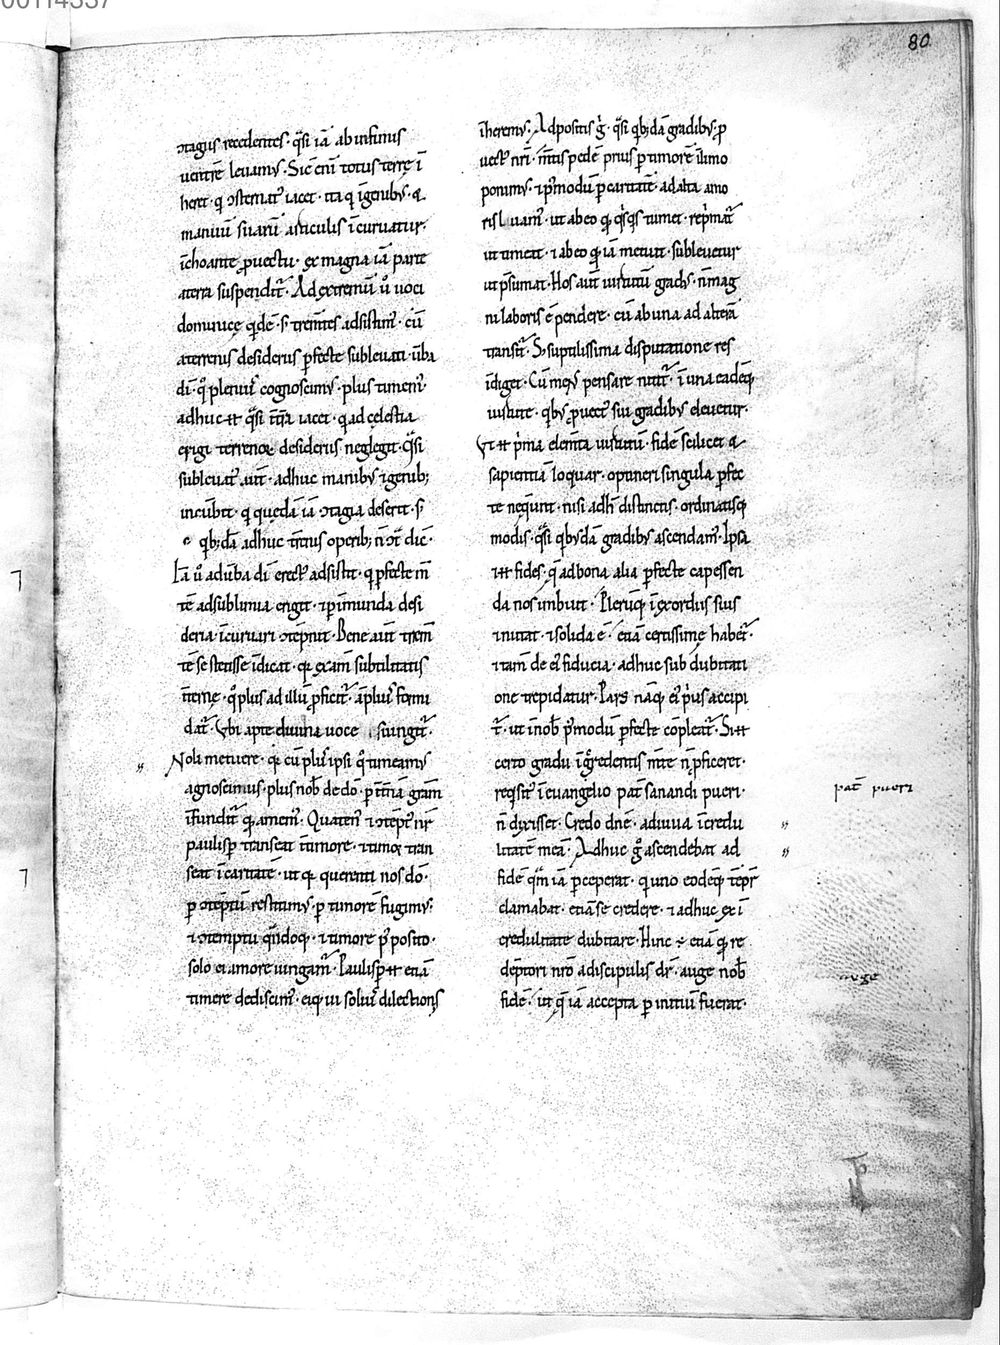 00114337
80
ɔtagiis recedentes· q̈si iā ab infimis
uentrē leuamꝰ· Sic eni totus terrę ī
heret· q̇ ɔsternat᷑ iacet· ita q̇ īgenibꝰ· &
manuū suarū articulis īcuruatur·
īchoante ꝓuectu· ex magna iā parte
a terra suspendit᷑· Ad extremū ů uoci
dominicę q̇dē· s; trem̄tes adsistim᷑· cū
a terrenis desideriis ꝑfecte subleuati· ūba
di· q̊ pleniꝰ cognoscimꝰ· plus timem᷑·
adhuc ⁊t q̈si ī t̄ra iacet· q̇ ad cęlestia
erigi terrenoꝝ desideriis neglegit· q̈si
subleuat᷑ aut̄· adhuc manibꝰ ⁊ genib;
incūbit· q̇ quędā iā ɔtagia deserit· s;
q̇b;dā adhuc t̄renis operib; n̄ ɔt͛dic̄·
Iā ů ad ūba di erectꝰ adsistit· q̇ ꝑfecte m̄
tē ad sublimia erigit· ⁊ ꝑ īmunda desi
deria īcuruari ɔtēpnit· Bene aut̄ trem̄
tē se stetisse īdicat· qꝛ exam̄ subtilitatis
īternę· q̊ plus ad illū ꝓficit᷑· āpliꝰ formi
dat᷑· Vbi apte diuina uoce siungit᷑·
Noli metuere· qꝛ cū plꝰ ipsi q̊ timeamꝰ
agnoscimus· plus nob̄ de do· ꝑ īt̄nā grām
īfundit᷑ q̇ amem᷑· Quaten᷑ ⁊ ɔtēptꝰ nr̄
paulisꝑ transeat ī timore· ⁊ timor tran
seat ī caritatē· ut qꝛ querenti nos do·
ꝑ ɔtēptū restitimꝰ· ꝑ timore fugimꝰ·
⁊ ɔtemptu qn̄doq;· ⁊ timore p᷑posito·
solo ei amore iungam᷑· Paulisꝑ ⁊t etiā
timere dediscim᷑· eiq; ui soliꝰ dilectionis
īheremꝰ· Adpositis g̊· q̈si q̇b;dā gradibꝰ· ꝓ
uectꝰ nri· m̄tis pedē prius ꝑ timorē ī imo
ponimꝰ· ⁊ p᷑modū ꝑ caritatē· ad alta amo
ris leuam᷑· ut ab eo qꝛ q̇sq̇s tumet· rep᷑mat᷑
ut timeat· ⁊ ab eo qꝛ iā metuit· subleuetur
ut p᷑sumat· Hos aut̄ uirtutū gradꝰ· n̄ mag
ni laboris ē pendere· cū ab una ad alterā
transit᷑· S; suptilissima disputatione res
īdiget· Cū meꝰ pensare nitit᷑· ī una eadeq;
uirtute· q̇bꝰ ꝓuectꝰ sui gradibꝰ eleuetur·
Vt ⁊t p᷑ma elem̄ta uirtutū· fidē scilicet &
sapientiā loquar· optineri singula ꝑfec
te neq̇unt· nisi adh̄ distinctis· ordinatisq;
modis· q̈si q̇bꝰdā gradibꝰ ascendam᷑· Ipsa
⁊t fides· q̄ ad bona alia ꝑfecte capessen
da nos imbuit· Plerūq; ī exordiis suis
⁊ nutat· ⁊ solida ē· etiā certissime habet᷑·
⁊ tam̄ de eꝰ fiducia· adhuc sub dubitati
one trepidatur· Pars nāq; eꝰ p᷑us accipi
t᷑· ut in nob̄ p᷑modū ꝑfecte cōpleat᷑· Si ⁊t
certo gradu īg᷑edientis m̄te n̄ ꝓficeret·
req̇situs ī euangelio pat̄ sanandi pueri·
n̄ dixisset· Credo dne· adiuua īcredu
litatē meā· Adhuc g̊ ascendebat ad
fidē q̄m iā ꝑceperat· q̇ uno eodeq; tēpr̄
clamabat· etiā se credere· ⁊ adhuc ex ī
credulitate dubitare· Hinc ÷ etiā qꝛ re
dēptori nr̄o a discipulis dr̄· auge nob̄
fidē· ut q̄ iā accepta ꝑ initiū fuerat·
pat̄ pueri
auge